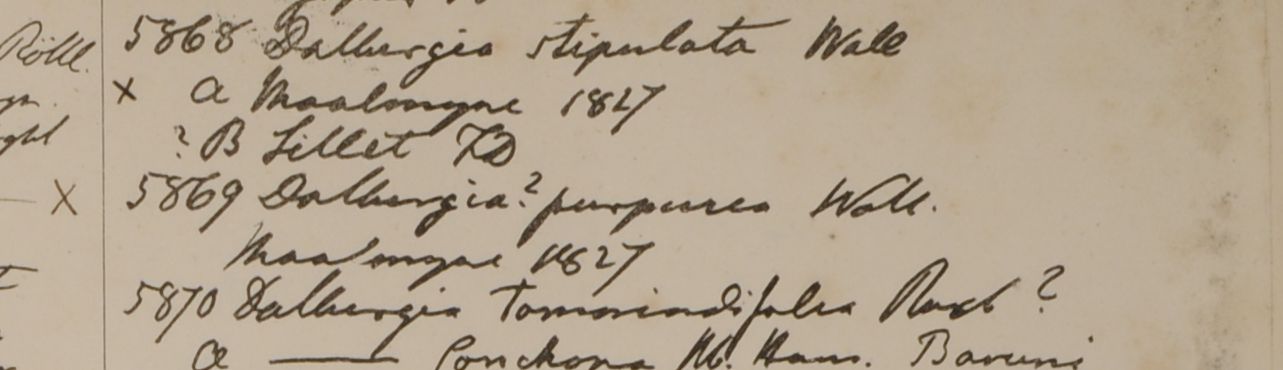 Röttl.
5868 Dalbergia stipulata Wall
x a Maalmyne 1827
? B Sillet FD
x 5869 Dalbergia? purpurea Wall.
Maalmyne 1827
5870 Dalbergia tamarindifolia Roxb?
a — M. Ham.